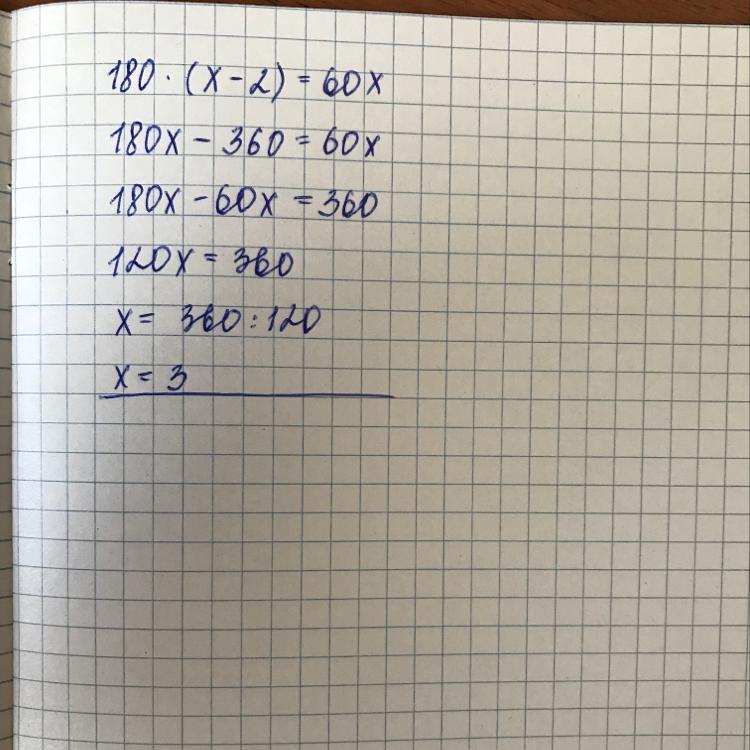 180 · (x - 2) = 60x
180x - 360 = 60x
180x - 60x = 360
120x = 360
x = 360 : 120
x = 3